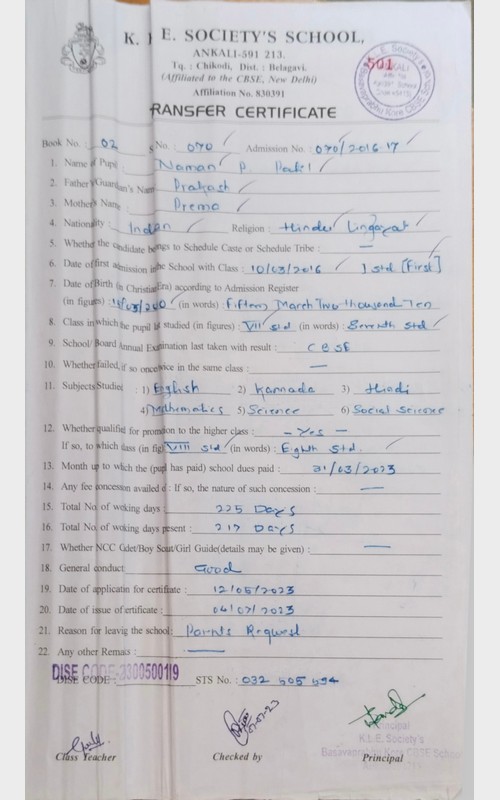 K. L E. SOCIETY'S SCHOOL,
ANKALI-591 213.
Tq. : Chikodi, Dist. : Belagavi.
(Affiliated to the CBSE, New Delhi)
Affiliation No. 830391
501
RANSFER CERTIFICATE
Book No. : 02 S No. : 070 Admission No. : 070/2016-17
1. Name of Pupil Naman P Patil
2. Father's/Guardian's Name Prakash
3. Mother's Name Prema
4. Nationality : Indian Religion : Hindu Lingayat
5. Whether the candidate belongs to Schedule Caste or Schedule Tribe : —
6. Date of first admission in the School with Class : 10/03/2016 I Std [First]
7. Date of Birth (in Christian Era) according to Admission Register
(in figures) : (in words) : Fifteen March Two thousand Ten
8. Class in which the pupil last studied (in figures) : VII Std (in words) : Seventh Std
9. School/ Board Annual Examination last taken with result : CBSE
10. Whether failed, if so once/twice in the same class : —
11. Subjects Studied : 1) English 2) Kannada 3) Hindi
4) Mathematics 5) Science 6) Social Science
12. Whether qualified for promotion to the higher class : - Yes -
If so, to which class (in fig) VIII Std (in words) : Eighth Std.
13. Month up to which the (pupil has paid) school dues paid : 31/03/2023
14. Any fee concession availed of : If so, the nature of such concession : —
15. Total No. of working days : 225 Days
16. Total No. of working days present : 217 Days
17. Whether NCC Cadet/Boy Scout/Girl Guide(details may be given) : —
18. General conduct : Good
19. Date of application for certificate : 12/05/2023
20. Date of issue of certificate : 04/07/2023
21. Reason for leaving the school : Parents Request
22. Any other Remarks : —
DISE CODE-330050019
DISE CODE : STS No. : 032 505 594
07-07-23
Principal
K.L.E. Society's
Basavaprabhu Kore CBSE School
Class Teacher Checked by Principal